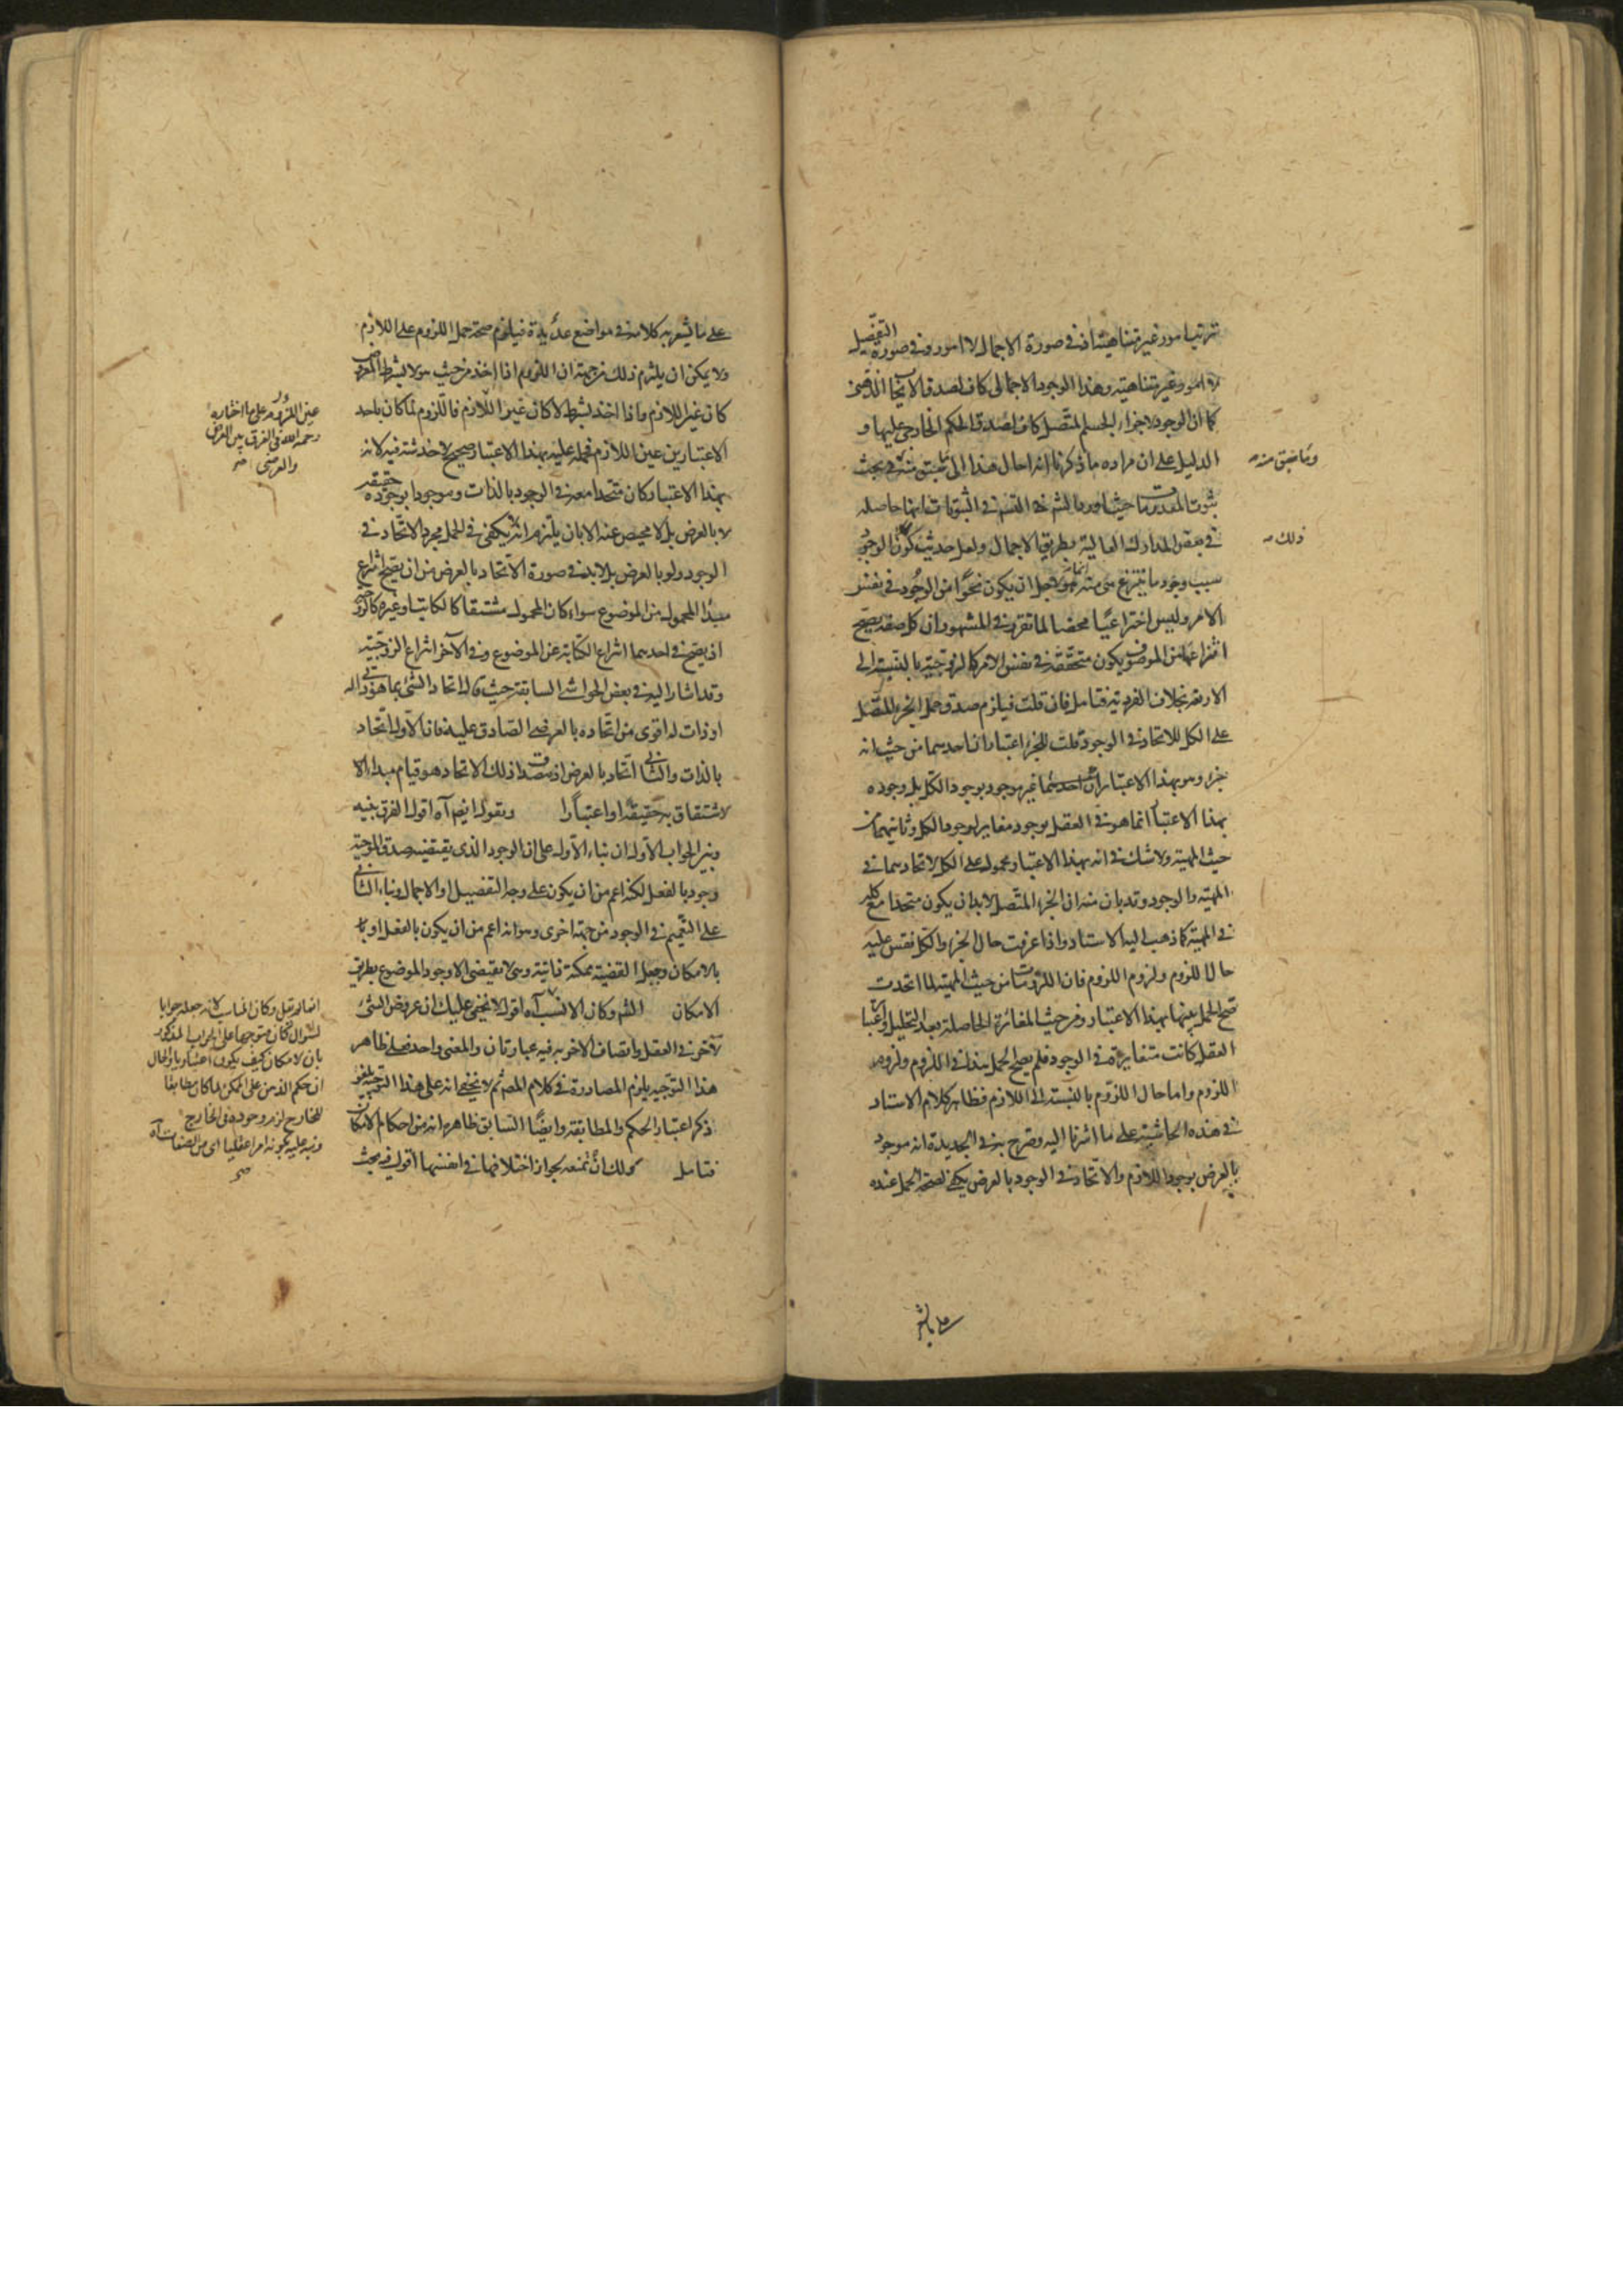 ترتب امور غير متناهية اذ في صورة الاجمال لا امور وفي صورة التفصيل
لا امور غير متناهية وهذا الوجود الاجمالى كاف لصدق الايجاب الذهنى
كما ان الوجود لاجزاء الجسم المتصل كاف لصدق الحكم الخارجى عليها و
الدليل على ان مراده ما ذكرنا انه احال هذا الى ما سبق منه في بحث
ثبوت المعدومات حيث اورد القسم في الثبوت انها حاصلة
في بعض المدارك العالية بطريق الاجمال ولعل حديث كون الوجود
سبب وجود ما ينتزع هى منه انما هو لاجل ان يكون نحوا من الوجود في نفس
الامر وليس اختراعيا محضا لما تقرر في المشهور ان كل صفة يصح
انتزاعها من الموصوف يكون متحققة في نفس الامر كالزوجية بالنسبة الى
الاربعة بخلاف الفردية فتامل فان قلت فيلزم صدق حمل الجزء المتصل
على الكل للاتحاد في الوجود قلت للجزء اعتباران احدهما من حيث انه
جزء وهو بهذا الاعتبار غير موجود بوجود الكل بل وجوده
بهذا الاعتبار انما هو في العقل بوجود مغاير لوجود الكل وثانيهما من
حيث المهية ولا شك في انه بهذا الاعتبار محمول على الكل لاتحادهما في
المهية والوجود وقد بان منه ان الجزء المتصل لابد ان يكون متحدا مع كله
في المهية كما ذهب اليه الاستاد واذا عرفت حال الجزء والكل فقس عليه
حال اللزوم ولزوم اللزوم فان اللزومات من حيث المهية لما اتحدت
صح الحمل بينها بهذا الاعتبار ومن حيث المغائرة الحاصلة بعد التحليل واعتبار
العقل كانت متغايرة في الوجود فلم يصح الحمل هذا في اللزوم ولزوم
اللزوم واما حال اللزوم بالنسبة الى اللازم فظاهر كلام الاستاد
في هذه الحاشية على ما اشرنا اليه وصرح به في الجديدة انه موجود
بالعرض بوجود اللازم والاتحاد في الوجود بالعرض يكفى لصحة الحمل عنده
وما سبق منه
ذلك
على ما يشعر
على ما يشعر به كلامه في مواضع عديدة فيلزم صحة حمل اللزوم على اللازم
ولا يمكن ان يلتزم ذلك من جهة ان اللزوم اذا اخذ من حيث هو لا بشرط
كان عين اللازم واذا اخذ بشرط لا كان غير اللازم فاللزوم لما كان باحد
الاعتبارين عين اللازم فحمله عليه بهذا الاعتبار صحيح لا خدشة فيه لانه
بهذا الاعتبار كان متحدا معه في الوجود بالذات وموجودا بوجوده حقيقة
لا بالعرض بل لا محيص عنه الا بان يلتزم انه لا يكفى في الحمل مجرد الاتحاد في
الوجود ولو بالعرض بل لابد في صورة الاتحاد بالعرض من ان يصح انتزاع
مبدا المحمول من الموضوع سواء كان المحمول مشتقا كالكاتب او غيره كالزوج
اذ يصح في احدهما انتزاع الكتابة عن الموضوع وفي الآخر انتزاع الزوجية
وقد اشار اليه في بعض الحواشى السابقة حيث قال اتحاد الشئ بما هو ذاتى له
او ذات له اقوى من اتحاده بالعرضى الصادق عليه فان الاول اتحاد
بالذات والثانى اتحاد بالعرض اذ مصداق ذلك الاتحاد هو قيام مبدء الا
لاشتقاق به حقيقة او اعتبارا وبقوله ايضا آه اقول الفرق بينه
وبين الجواب الاول ان بناء الاول على ان الوجود الذى يقتضيه صدق الموجبة
وجود بالفعل لكنه اعم من ان يكون على وجه التفصيل او الاجمال وبناء الثانى
على التعميم في الوجود من جهة اخرى وهو انه اعم من ان يكون بالفعل او با
بالامكان وجعل القضية ممكنة ذاتية وهى لا تقتضى الا وجود الموضوع بطريق
الامكان الش وكان الانسب آه اقول لا يخفى عليك ان عروض الشئ
لآخر في العقل واتصاف الاخر به فيه عبارتان والمعنى واحد فعلى ظاهر
هذا التوجيه يلزم المصادرة في كلام المص ثم لا يخفى انه على هذا التوجيه يلغو
ذكر اعتبار الحكم والمطابقة وايضا السابق ظاهره انه من احكام الامكان
فتامل ولك ان تمنعه بجواز اختلافها في انفسها اقول فيه بحث
عين اللزوم على ما اختاره
رحمه الله في الفرق بين العرض
والعرضى
انما لم يقل وكان المناسب لانه جعله جوابا
لسؤال كان متوجها على الجواب المذكور
بان الامكان كيف يكون اعتباريا والحال
ان حكم الذهن على الممكن لما كان مطابقا
للخارج لزم وجوده في الخارج
ونبه عليه بكونه امرا عقليا اى من الصفات آه